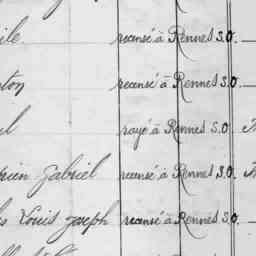 ile recensé à Rennes S.O.
ton recensé à Rennes S.O.
el rayé à Rennes S.O.
rien Gabriel recensé à Rennes S.O.
Louis Joseph recensé à Rennes S.O.